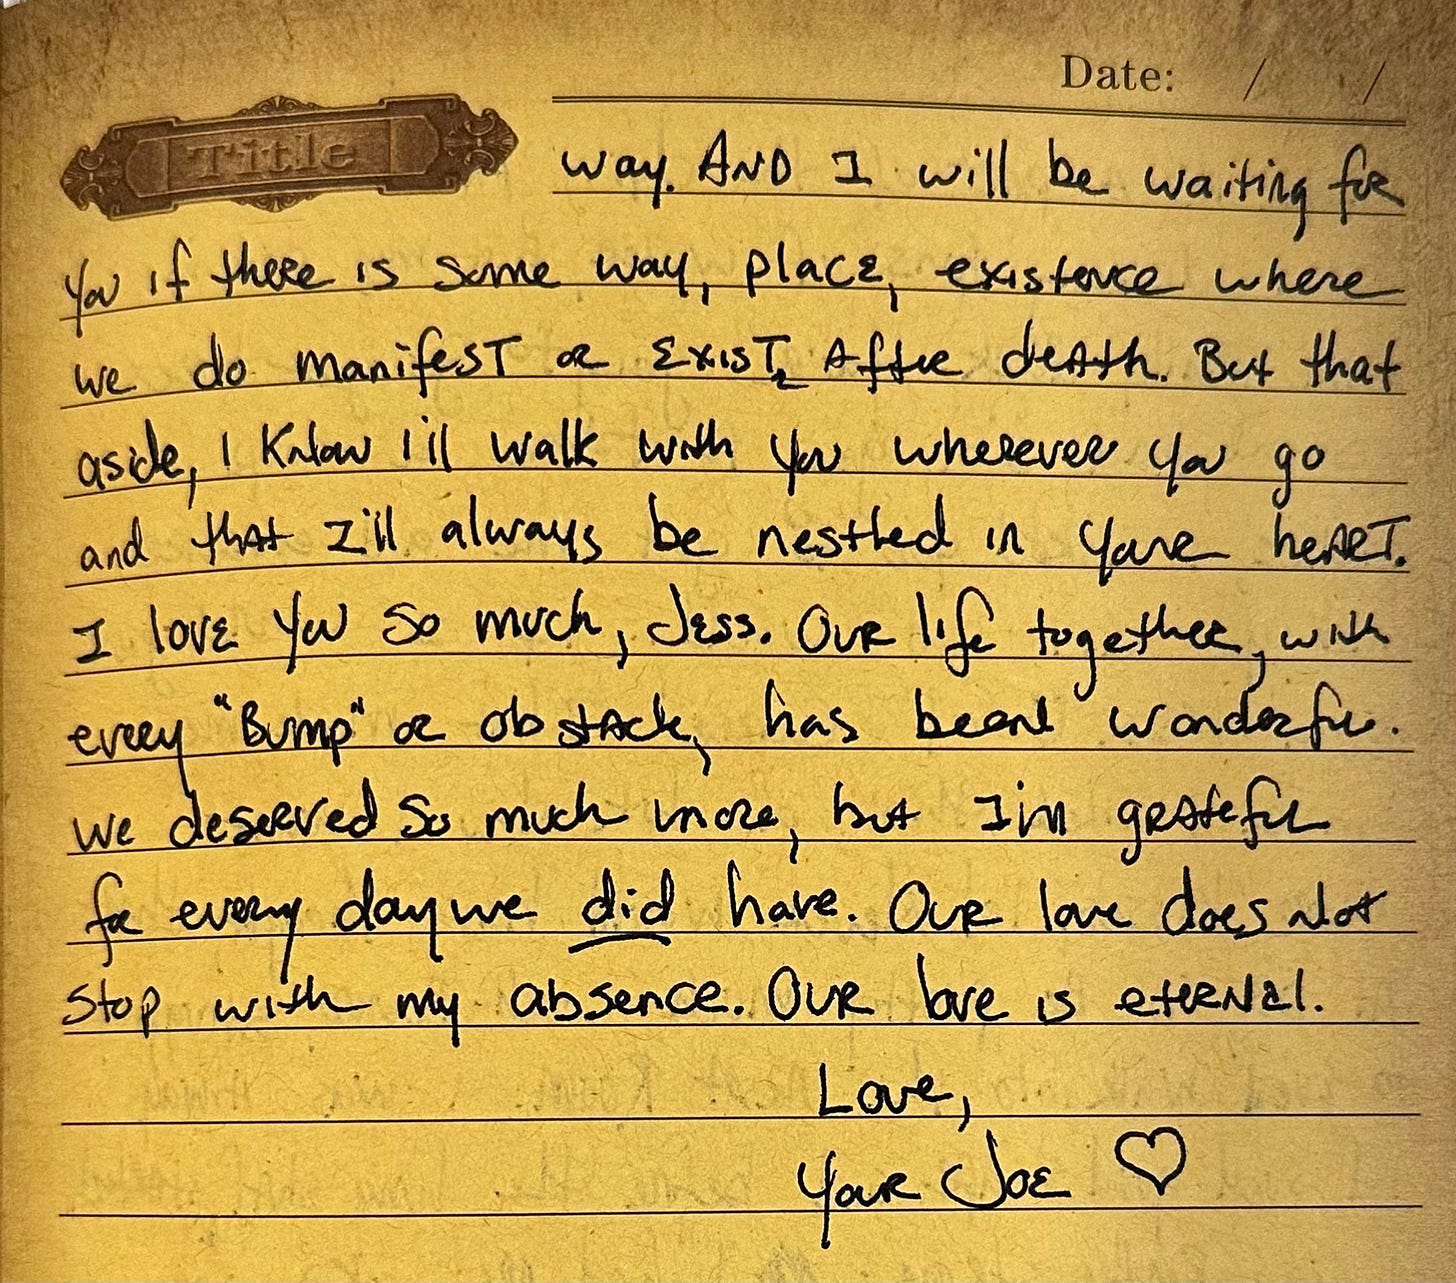 Date: / /
Title
way. AND I will be waiting for
you if there is some way, place, existence where
we do manifest or exist, after death. But that
aside, I know I'll walk with you wherever you go
and that I'll always be nestled in your heart.
I love you so much, Jess. Our life together, with
every "Bump" or obstacle, has been wonderful.
we deserved so much more, but I'm grateful
for every day we did have. Our love does Not
stop with my absence. Our love is eternal.
Love,
Your Joe ♡